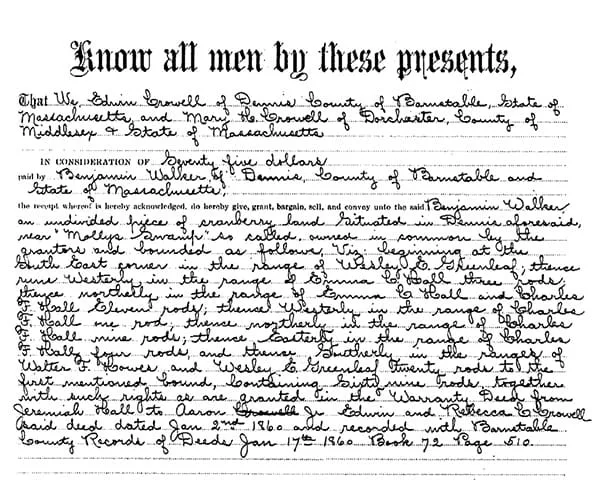 Know all men by these presents,
That We, Edwin Crowell of Dennis County of Barnstable, State of
Massachusetts, and Mary H. Crowell of Dorchester, County of
Middlesex & State of Massachusetts
IN CONSIDERATION OF Seventy five dollars
paid by Benjamin Walker of Dennis, County of Barnstable and
State of Massachusetts,
the receipt whereof is hereby acknowledged, do hereby give, grant, bargain, sell, and convey unto the said Benjamin Walker
an undivided piece of cranberry land situated in Dennis aforesaid,
near "Mollys Swamp" so called, owned in common by the
grantors and bounded as follows, Viz: beginning at the
South East corner in the range of Wesley E. Greenleaf; thence
runs Westerly in the range of Emma C. Hall three rods;
thence northerly in the range of Emma C Hall and Charles
F. Hall Eleven rods; thence Westerly in the range of Charles
F. Hall one rod; thence northerly in the range of Charles
F. Hall nine rods; thence Easterly in the range of Charles
F. Hall four rods, and thence Southerly in the ranges of
Walter F. Howes and Wesley E. Greenleaf twenty rods to the
first mentioned bound, Containing Sixty nine rods, together
with such rights as are granted in the Warranty Deed from
Jeremiah Hall to Aaron Crowell Jr Edwin and Rebecca C Crowell
said deed dated Jan 2nd 1860 and recorded with Barnstable
County Records of Deeds Jan 17th 1860 Book 72 Page 510.